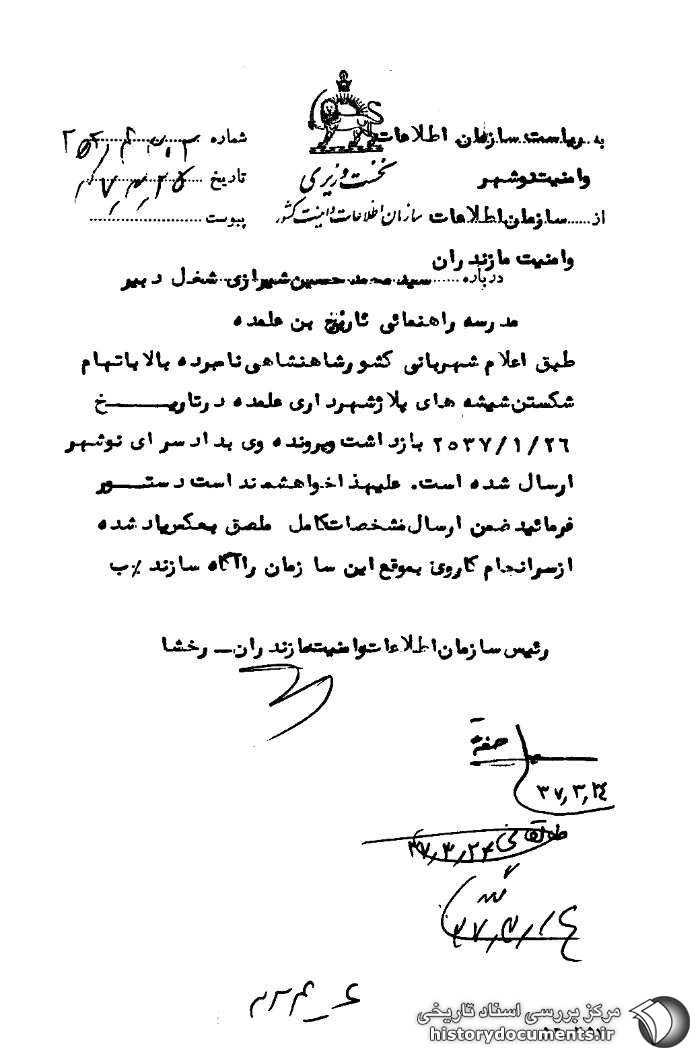 به ریاست سازمان اطلاعات
وامنیت نوشهر
از سازمان اطلاعات
وامنیت مازندران
نخست وزیری
سازمان اطلاعات و امنیت کشور
شماره
تاریخ
پیوست
درباره سید محمد حسین شیرازی شغل دبیر
مدرسه راهنمائی بن علمده
طبق اعلام شهربانی کشور شاهنشاهی نامبرده بالا باتهام
شکستن شیشه های پلاژ شهرداری علمده در تاریخ
۲۵۳۷/۱/۲۶ بازداشت و پرونده وی بدادسرای نوشهر
ارسال شده است. علیهذا خواهشمند است دستور
فرمائید ضمن ارسال مشخصات کامل ملصق بعکس یاد شده
از سرانجام کاروی بموقع این سازمان را آگاه سازند %ب
رئیس سازمان اطلاعات وامنیت مازندران – رخشا
۳۷,۳,۲۴
۳۷,۳,۲۴
مرکز بررسی اسناد تاریخی
historydocuments.ir